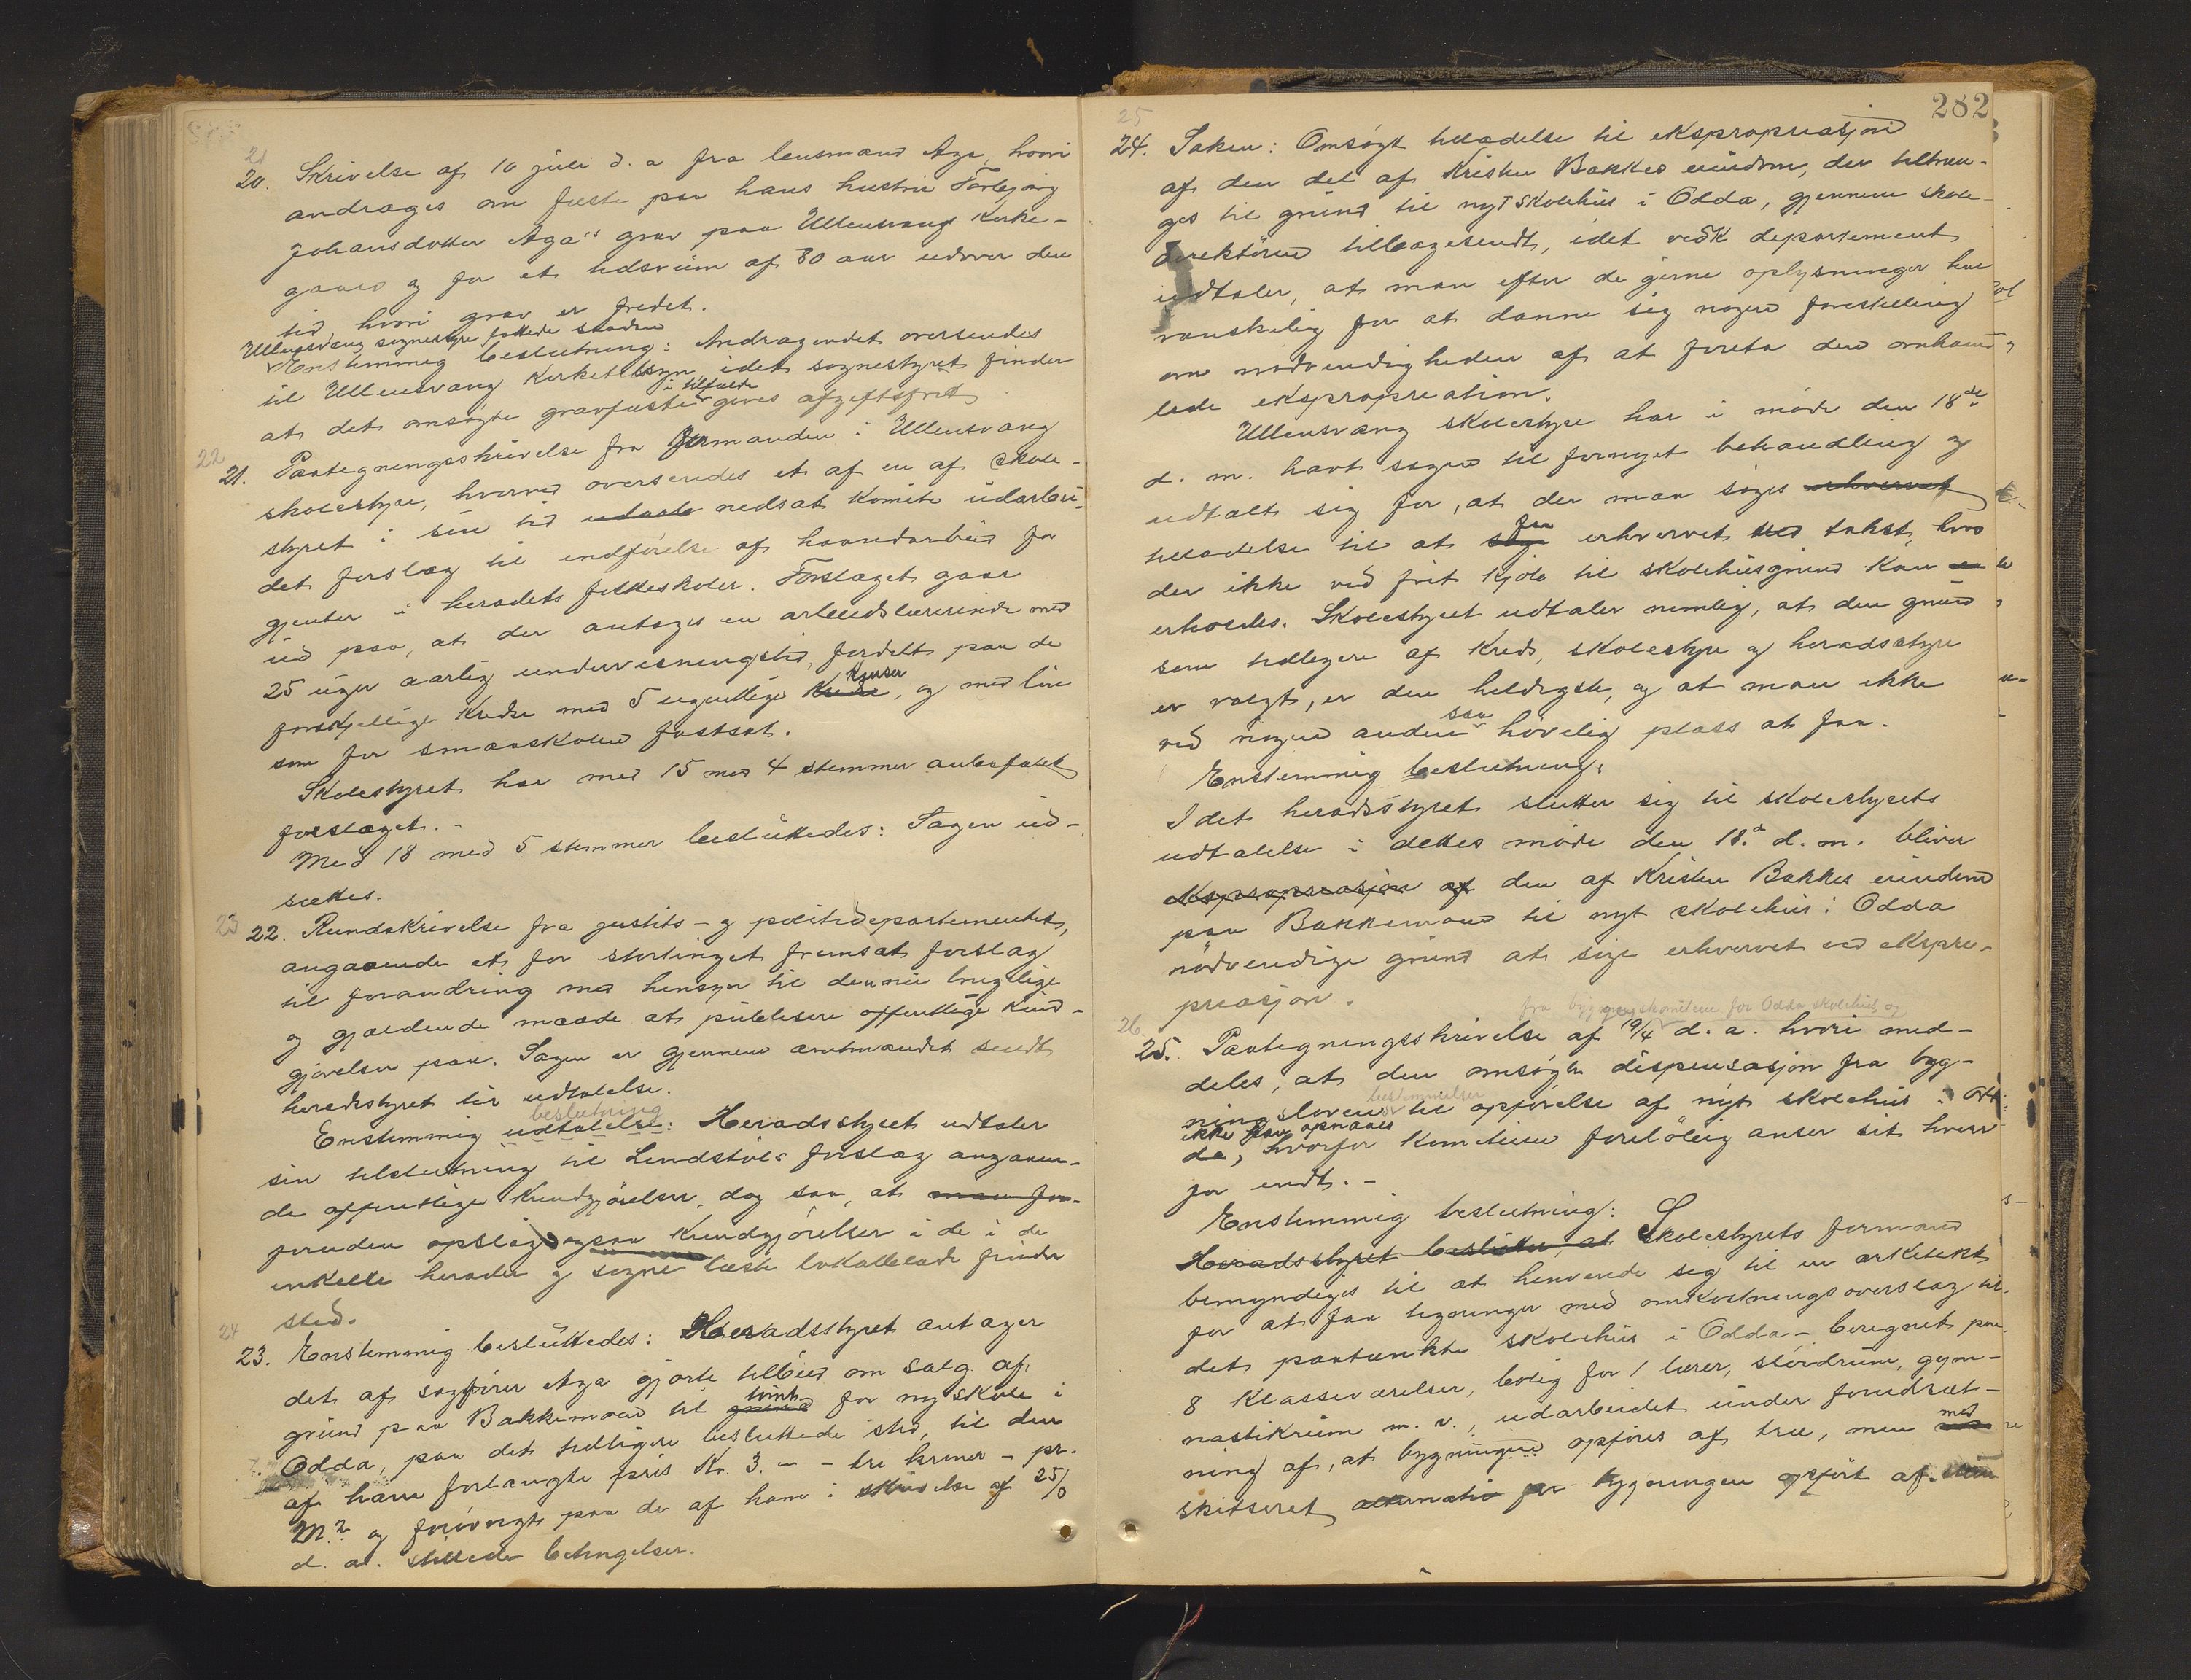 21
20. Skrivelse af 10 juli d. a fra lensmand Aga, hvori
andrages om feste paa hans hustru Torbjørg
Johansdotter Aga's grav paa Ullensvang kirke-
gaard og for et tidsrum af 80 aar udover den
tid, hvori grav er fredet.
Ullensvang sognestyre fattede saadan
Enstemmig beslutning: Andragendet oversendes
til Ullensvang Kirketilsyn, idet sognestyret finder
i tilfælde
at det omsøgte gravfæste gives afgiftsfrit
22
21. Paategningsskrivelse fra formanden i Ullensvang
skolestyre, hvorved oversendes et af en af skole-
styret i sin tid udarb nedsat komite udarbei-
det forslag til indførelse af haandarbeid for
gjenter i heradets folkeskoler. Forslaget gaar
ud paa, at der antages en arbeidslærerinde med
25 uger aarlig undervisningstid, fordelt paa de
kurser
forskjellige kredse med 5 ugentlige kredse, og med løn
som for smaaskolen fastsat.
Skolestyret har med 15 mod 4 stemmer anbefalet
forslaget.-
Med 18 mod 5 stemmer besluttedes: Sagen ud-
sættes.
23
22. Rundskrivelse fra justits- og politidepartementet,
angaaende et for stortinget fremsat forslag
til forandring med hensyn til den nu brugelige
og gjældende maade at publisere offentlige kund-
gjørelser paa. Sagen er gjennem amtmandet sendt
heradsstyret til udtalelse.
beslutning
Enstemmig udtalelse: Heradsstyret udtaler
sin tilslutning til Lindstøls forslag angaaen-
de offentlige kundgjørelser, dog saa, at man for-
foruden opslag ogsaa kundgjørelser i de i de
enkelte herader og sogne læste lokalblade finder
sted.
24
23. Enstemmig besluttedes: Heradsstyret antager
det af sagfører Aga gjorte tilbud om salg af
grund paa Bakkemoen til tomt for ny skole i
Odda, paa det tidligere besluttede sted, til den
af ham forlangte pris Kr. 3.- - tre kroner - pr.
M2 og forøvrigt paa de af ham i skrivelse af 25/
d. a. stillede betingelser.
282
25
24. Saken: Omsøgt tilladelse til ekspropriasjon
af den del af Kristen Bakkes eiendom, der tiltræn-
ges til grund til nyt skolehus i Odda, gjennem skole-
direktøren tilbagesendt, idet vedk departement
udtaler, at man efter de givne oplysninger har
vanskelig for at danne sig nogen forestilling
om nødvendigheden af at foreta den omhand-
lede ekspropriation.
Ullensvang skolestyre har i møde den 18de
d. m. havt sagen til fornyet behandling og
udtalt sig for, at der maa søges erhvervet
faa
tilladelse til at søge erhvervet ved takst, hvis
der ikke ved frit kjøb til skolehusgrund kan
erholdes. Skolestyret udtaler nemlig, at den grund
som tidligere af kreds, skolestyre og heradsstyre
er valgt, er den heldigste, og at man ikke
saa
ved nogen anden høvelig plass at faa.
Enstemmig beslutning:
Idet heradsstyret slutter sig til skolestyrets
udtalelse i dettes møde den 18.d d. m. bliver
ekspropriasjon af den af Kristen Bakkes eiendom
paa Bakkemoen til nyt skolehus i Odda
nødvendige grund at søge erhvervet ved ekspro-
priasjon.
fra bygningskomiteen for Odda skolehus og
26
25. Paategningsskrivelse af 19/4 d. a. hvori med-
deles, at den omsøgte dispensasjon fra byg-
bestemmelser
ningslovens til opførelse af nyt skolehus i Od-
ikke kan opnaaes
da, hvorfor komiteen foreløbig anser sit hverv
for endt.-
Enstemmig beslutning:
Heradsstyret beslutter, at Skolestyrets formand
bemyndiges til at henvende sig til en arkitekt
for at faa tegninger med omkostningsoverslag til
det paatænkte skolehus i Odda - beregnet paa
8 klasseværelser, bolig for 1 lærer, sløidrum, gym-
nastikrum m. v., udarbeidet under forudsæt-
ning af, at bygningen opføres af træ, men med
skitseret alternativ for bygningen opført af sten